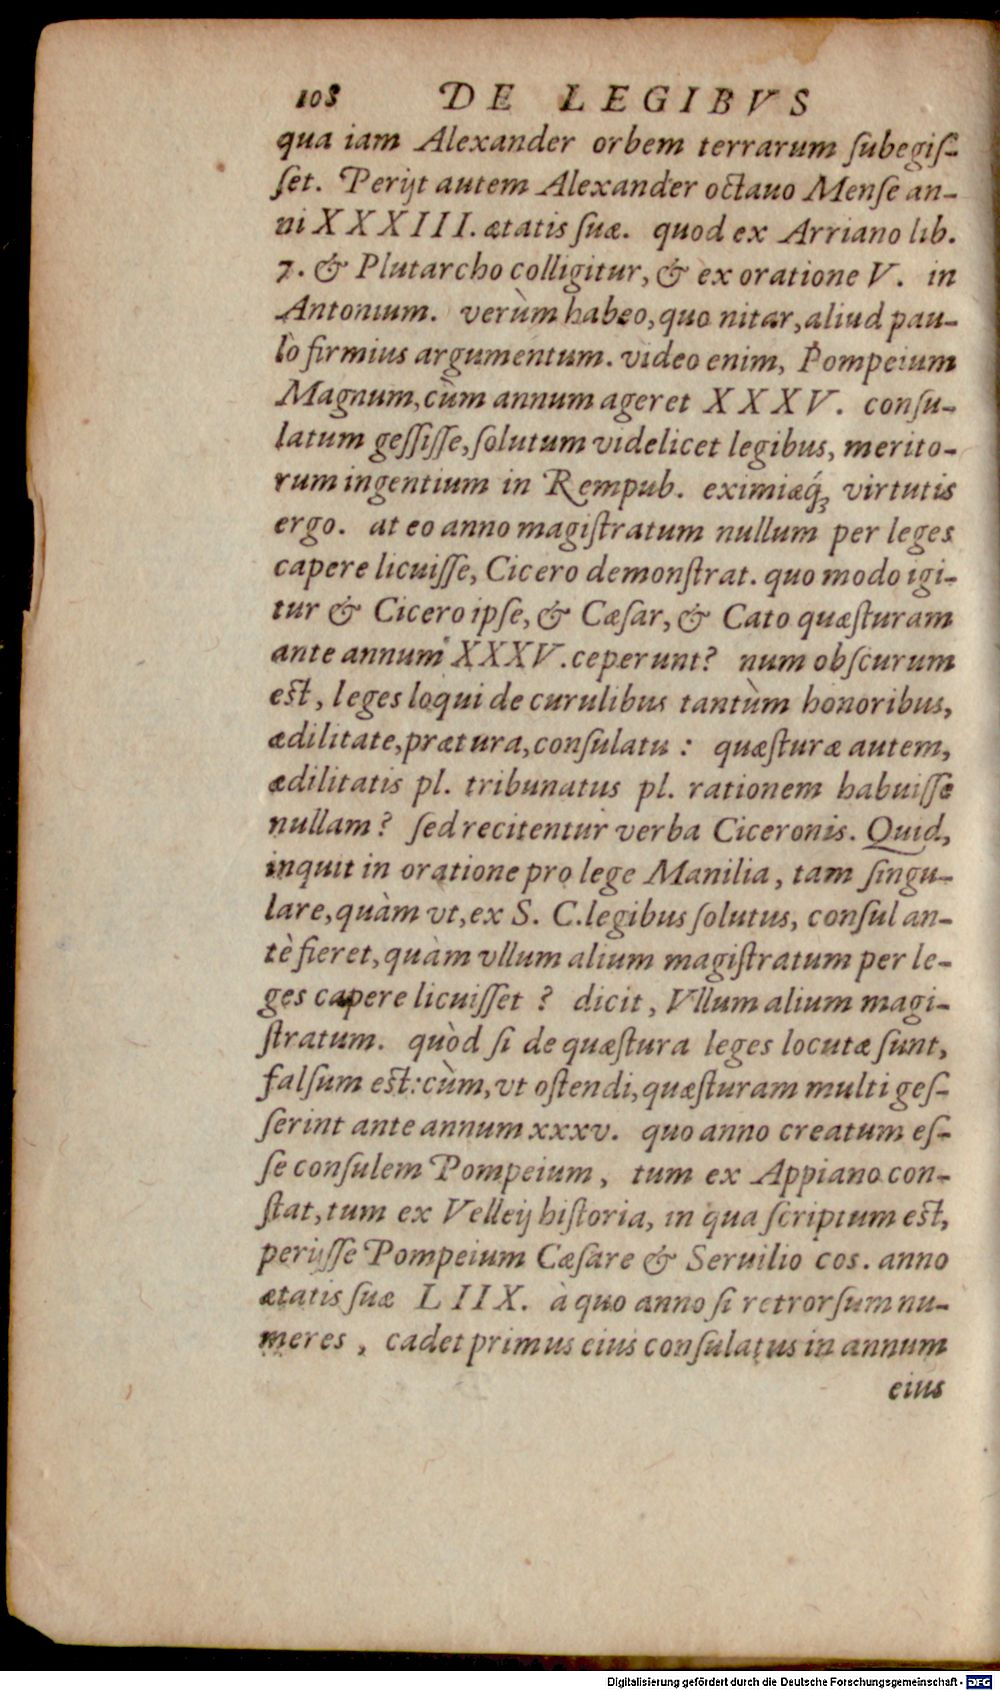 108 DE LEGIBVS
qua iam Alexander orbem terrarum ſubegiſ-
ſet. Perijt autem Alexander octauo Menſe an-
ni XXXIII. ætatis ſuæ. quod ex Arriano lib.
7. & Plutarcho colligitur, & ex oratione V. in
Antonium. verùm habeo, quo nitar, aliud pau-
lò firmius argumentum. video enim, Pompeium
Magnum, cùm annum ageret XXXV. conſu-
latum geſſiſſe, ſolutum videlicet legibus, merito-
rum ingentium in Rempub. eximiæq́; virtutis
ergo. at eo anno magiſtratum nullum per leges
capere licuiſſe, Cicero demonſtrat. quo modo igi-
tur & Cicero ipſe, & Cæſar, & Cato quæſturam
ante annum XXXV. ceperunt? num obſcurum
eſt, leges loqui de curulibus tantùm honoribus,
ædilitate, prætura, conſulatu: quæſturæ autem,
ædilitatis pl. tribunatus pl. rationem habuiſſe
nullam? ſed recitentur verba Ciceronis. Quid,
inquit in oratione pro lege Manilia, tam ſingu-
lare, quàm vt, ex S. C. legibus ſolutus, conſul an-
tè fieret, quàm vllum alium magiſtratum per le-
ges capere licuiſſet? dicit, Vllum alium magi-
ſtratum. quòd ſi de quæſtura leges locutæ ſunt,
falſum eſt: cùm, vt oſtendi, quæſturam multi geſ-
ſerint ante annum xxxv. quo anno creatum eſ-
ſe conſulem Pompeium, tum ex Appiano con-
ſtat, tum ex Velleij hiſtoria, in qua ſcriptum eſt,
perijſſe Pompeium Cæſare & Seruilio cos. anno
ætatis ſuæ LIIX. à quo anno ſi retrorſum nu-
meres, cadet primus eius conſulatus in annum
eius
Digitalisierung gefördert durch die Deutsche Forschungsgemeinschaft - DFG